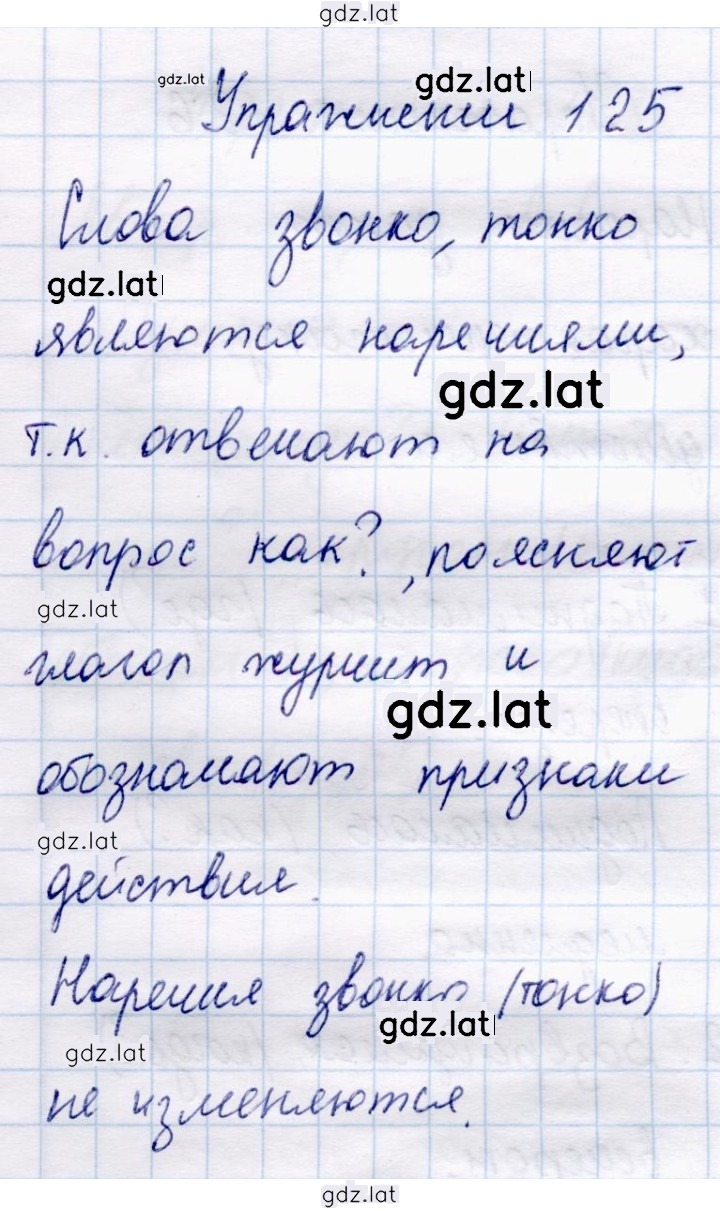 gdz.lat
gdz.lat
gdz.lat
Упражнении 125
Слова звонко, тонко
gdz.lat
являются наречиями,
gdz.lat
т.к. отвечают на
вопрос как?, поясняют
gdz.lat
глагол журчит и
gdz.lat
обозначают признаки
gdz.lat
действия.
Наречия звонко (тонко)
gdz.lat
gdz.lat
не изменяются.
gdz.lat